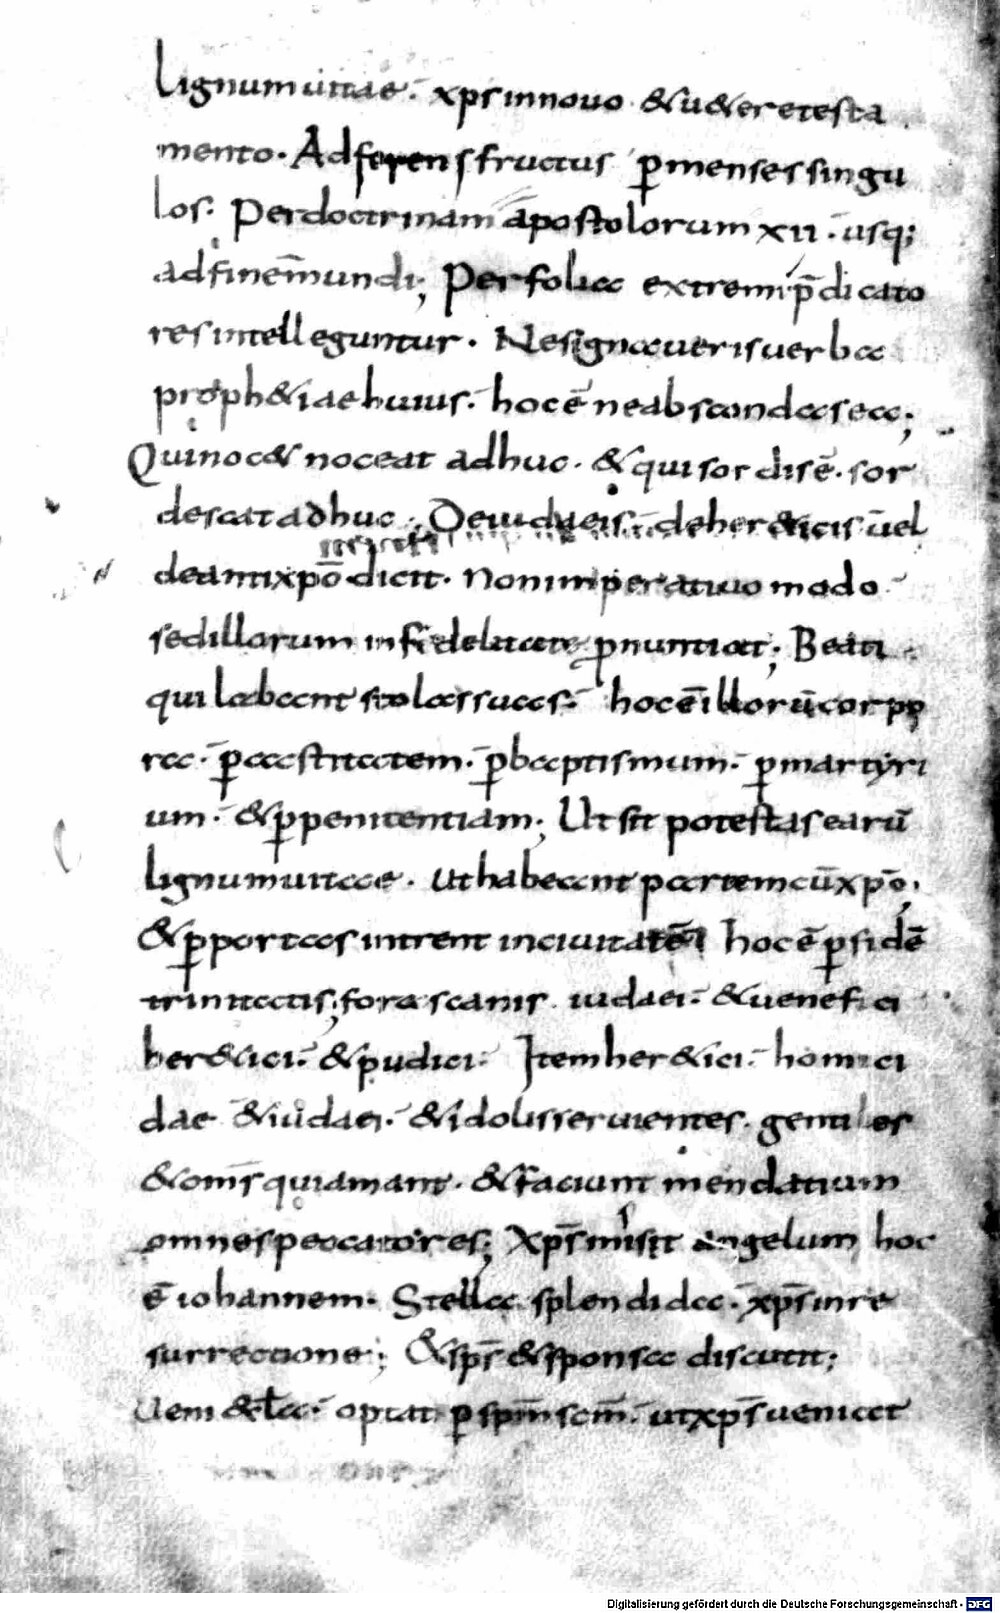 Lignum uitae·̄ xp̄s in nouo & u&ere testa
mento· Adferens fructus p̄ menses singu
los:· Per doctrinam apostolorum xii· usq;
ad finem̄ mundi; Per folia extremi p̄dicato
res intelleguntur· Ne signaueris uerba
proph&iae huius·̄ hoc ē ne abscondas ea;
Qui noc& noceat adhuc· & qui sordis ē· sor
descat adhuc; De iudaeis·̄ de her&icis ūel
de antixpō dicit· Non imperatiuo modo
sed illorum infidelitate p̄nuntiat; Beati
qui labant stolas suas·̄ hoc ē illorū corpo
ra·̄ p castitatem·̄ p baptismum·̄ p martyri
um·̄ & p penitentiam; Ut sit potestas earū
lignum uitae· ut habeant partem cū xpō;
& p portas intrent in ciuitatē hoc ē p fidē
trinitatis; foras canis iudaei·̄ & uenefici
her&ici·̄ & pudici·̄ Item her&ici·̄ homici
dae & iudaei·̄ & idolis seruientes· gentiles
& om̄s qui amant· & faciunt mendatium
omnes peccatores; Xp̄s misit angelum hoc
ē iohannem· Stella splendida·̄ xp̄s in re
surrectione; & sp̄s & sponsa discutit;
Uem & optat p sp̄m sc̄m·̄ ut xp̄s ueniat
Digitalisierung gefördert durch die Deutsche Forschungsgemeinschaft - DFG